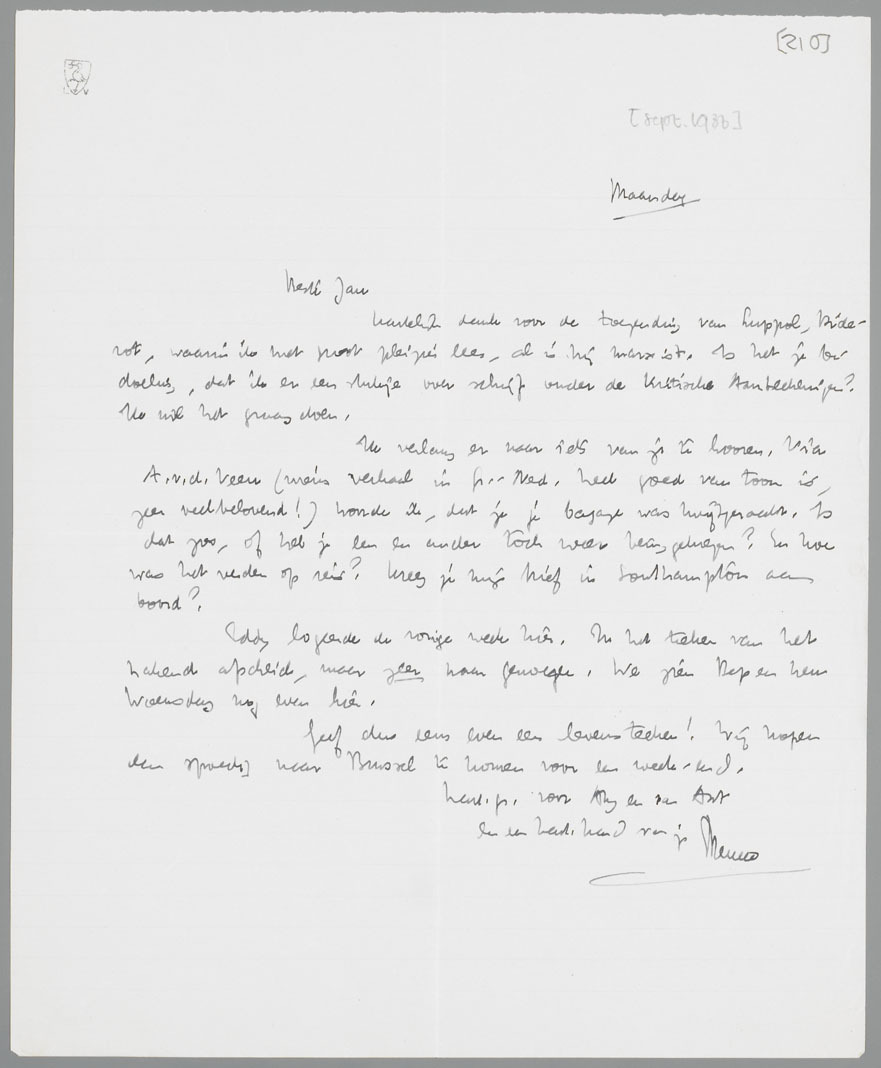 [210]
[Sept. 1936]
Maandag
Beste Jan
hartelijk dank voor de toezending van Luppol, Dide-
rot, waarin ik met groot pleizier lees, al is hij marxist. Is het je be-
doeling, dat ik er een stukje over schrijf onder de Kritische Aanteekeningen?
Ik wil het graag doen.
Ik verlang er naar iets van je te hooren. Via
A. v. d. Veen (wiens verhaal in Gr.-Ned. heel goed van toon is,
zeer veelbelovend!) hoorde ik, dat je je bagage was kwijtgeraakt. Is
dat zoo, of heb je een en ander toch weer teruggekregen? En hoe
was het verder op reis? Kreeg je mijn brief in Southampton aan
boord?
Eddy logeerde de vorige week hier. In het teeken van het
naderend afscheid, maar zeer naar genoegen. We zien Bep en hem
Woensdag nog even hier.
Geef dus eens even een levensteeken! Wij hopen
dan spoedig naar Brussel te komen voor een week-end.
hart. gr. voor Any en van Ant
en een hart. hand van je Menno